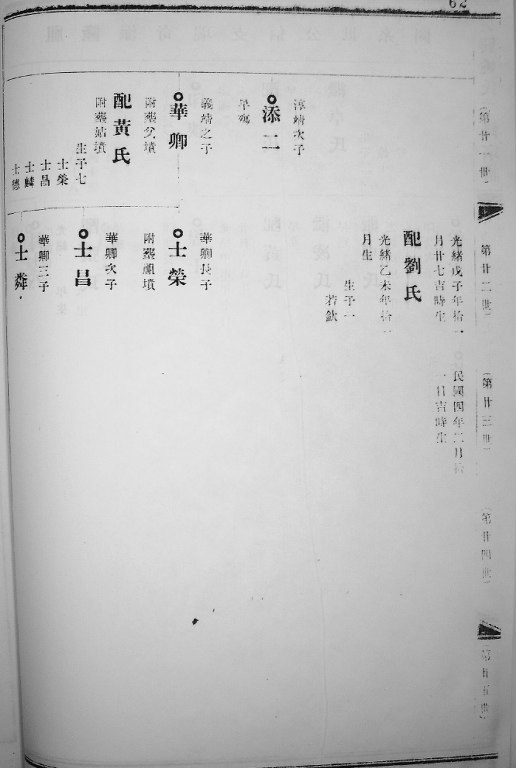 62
第廿一世
第廿二世
第廿三世
第廿四世
第廿五世
淳靖次子
添二
早殤
義靖之子
華卿
附葬父墳
配黃氏
附葬姑墳
生子七
士榮
士昌
士麟
士德
光緒戊子年拾一
月廿七吉時生
配劉氏
光緒乙未年拾一
月生
生子一
若欽
民國四年二月拾
一日吉時生
華卿長子
士榮
附葬祖墳
華卿次子
士昌
華卿三子
士粦